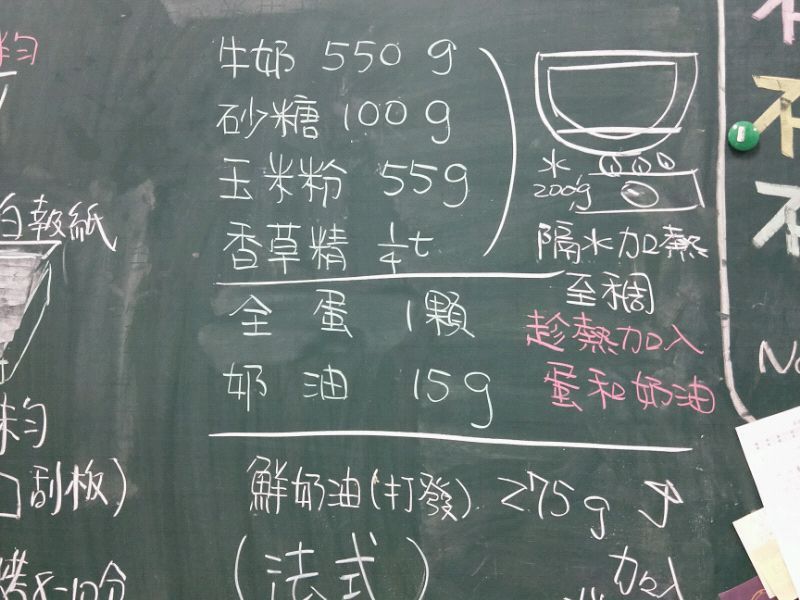 牛奶 550 g
砂糖 100 g
玉米粉 55g
香草精 ¼t
水
200g
隔水加熱
至稠
趁熱加入
蛋和奶油
全 蛋 1顆
奶 油 15g
鮮奶油(打發) 275g
(法式)
加入
白報紙
刮板)
烤8-10分
No